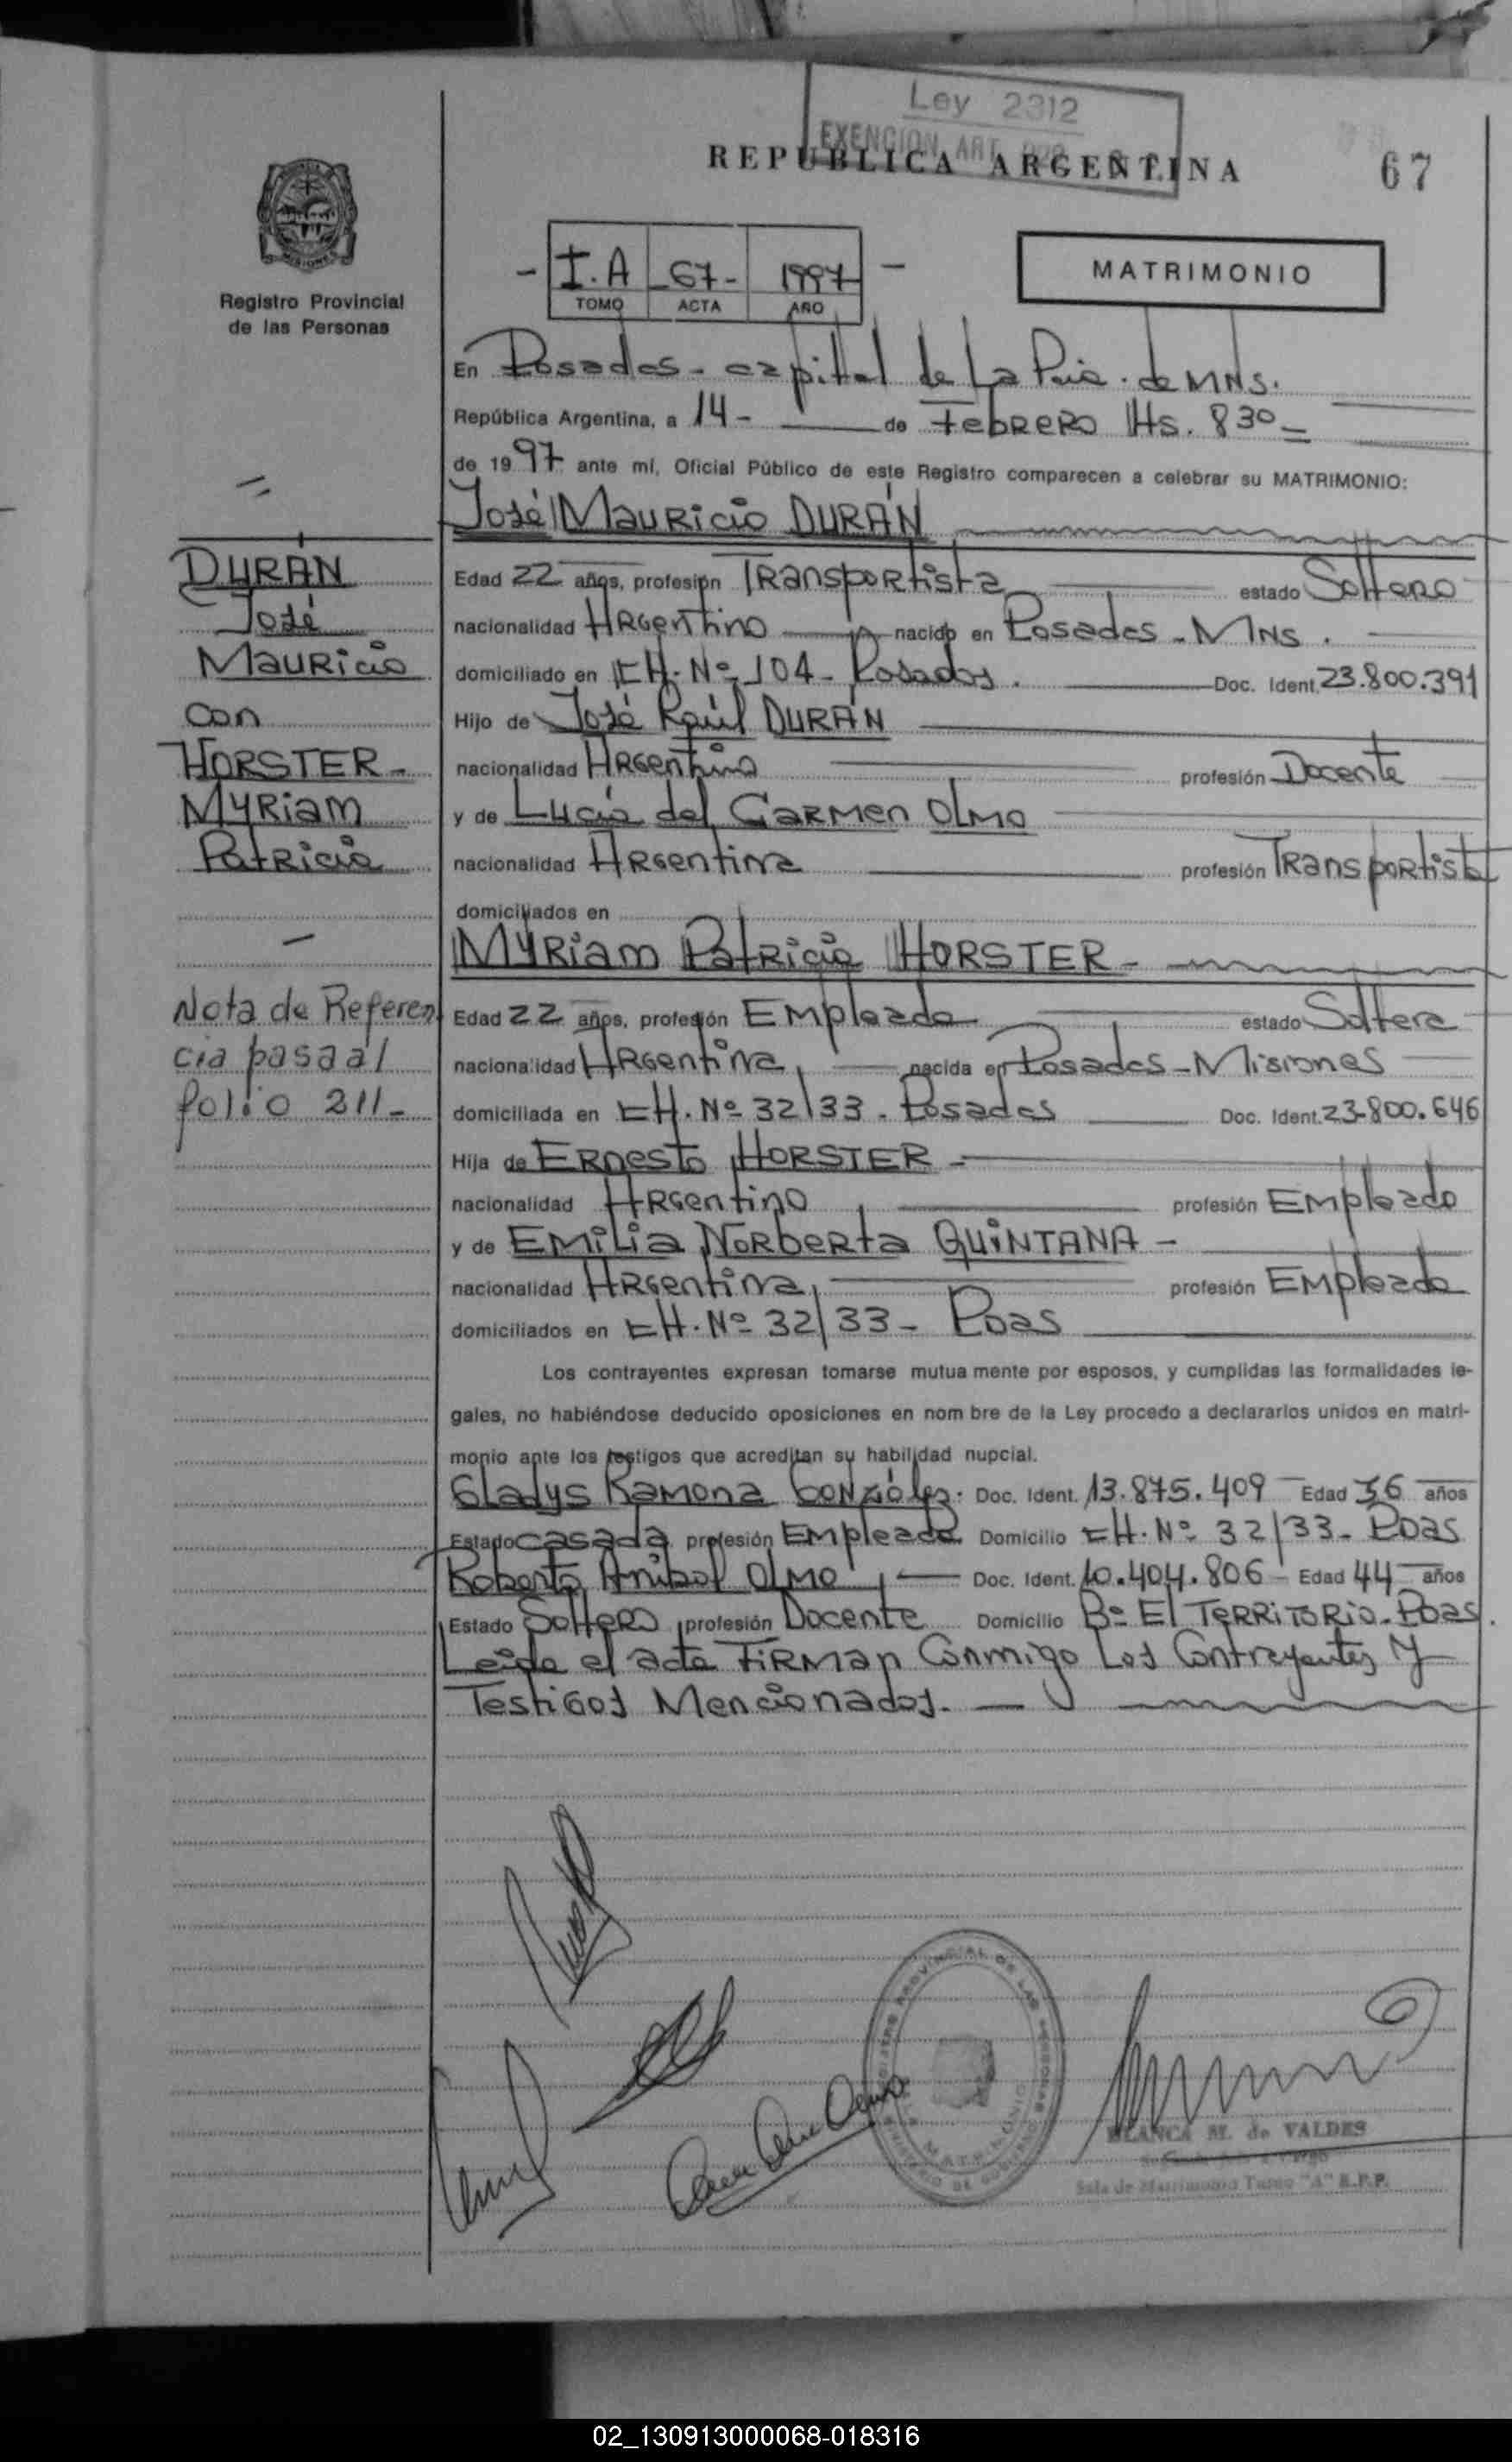 Ley 2312
EXENCION ART.
REPUBLICA ARGENTINA
67
MISIONES
Registro Provincial
de las Personas
- I.A 67- 1997 -
TOMO ACTA AÑO
MATRIMONIO
En Posadas - capital de La Pcia. de MNS.
República Argentina, a 14- de Febrero Hs. 830-
de 1997 ante mí, Oficial Público de este Registro comparecen a celebrar su MATRIMONIO:
José Mauricio DURÁN
DURÁN
José
Mauricio
con
HORSTER-
Myriam
Patricia
Edad 22 años, profesión Transportista estado Soltero
nacionalidad Argentino nacido en Posadas - MNS.
domiciliado en CH. Nº 104 - Posadas. Doc. Ident. 23.800.391
Hijo de José Raúl DURÁN
nacionalidad Argentino profesión Docente
y de Lucía del Carmen OLMO
nacionalidad Argentina profesión Transportista
domiciliados en
Myriam Patricia HORSTER-
Nota de Referen
cia pasa al
folio 211-
Edad 22 años, profesión Empleada estado Soltera
nacionalidad Argentina nacida en Posadas - Misiones
domiciliada en CH. Nº 32/33 - Posadas Doc. Ident. 23.800.646
Hija de Ernesto HORSTER -
nacionalidad Argentino profesión Empleado
y de Emilia Norberta QUINTANA -
nacionalidad Argentina profesión Empleada
domiciliados en CH. Nº 32/33 - Pdas
Los contrayentes expresan tomarse mutua mente por esposos, y cumplidas las formalidades le-
gales, no habiéndose deducido oposiciones en nom bre de la Ley procedo a declararlos unidos en matri-
monio ante los testigos que acreditan su habilidad nupcial.
Gladys Ramona González. Doc. Ident. 13.875.409 Edad 36 años
Estado casada profesión Empleada Domicilio CH. Nº 32/33 - Pdas
Roberto Aníbal OLMO Doc. Ident. 10.404.806 - Edad 44 años
Estado Soltero profesión Docente Domicilio Bº El Territorio - Pdas.
Leída el acta firman conmigo los contrayentes y
Testigos Mencionados.
MATRIMONIO
BLANCA M. de VALDES
Sala de Matrimonio Turno "A" R.P.P.
02_130913000068-018316